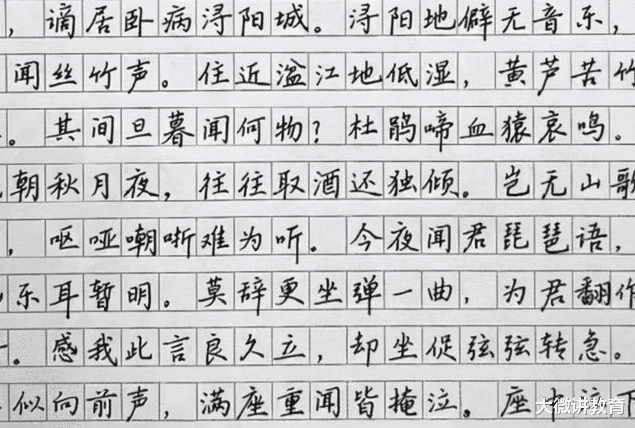 ，谪居卧病浔阳城。浔阳地僻无音乐，
闻丝竹声。住近湓江地低湿，黄芦苦竹
。其间旦暮闻何物？杜鹃啼血猿哀鸣。
朝秋月夜，往往取酒还独倾。岂无山歌
，呕哑嘲哳难为听。今夜闻君琵琶语，
乐耳暂明。莫辞更坐弹一曲，为君翻作
。感我此言良久立，却坐促弦弦转急。
似向前声，满座重闻皆掩泣。座中泣下
大微讲教育